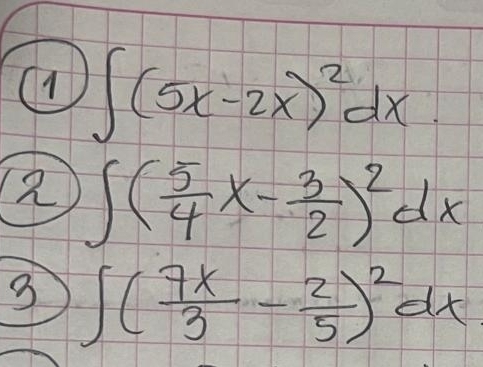 ① ∫(5x-2x)²dx.
② ∫(5/4 x - 3/2)²dx
③ ∫(7x/3 - 2/5)²dx.